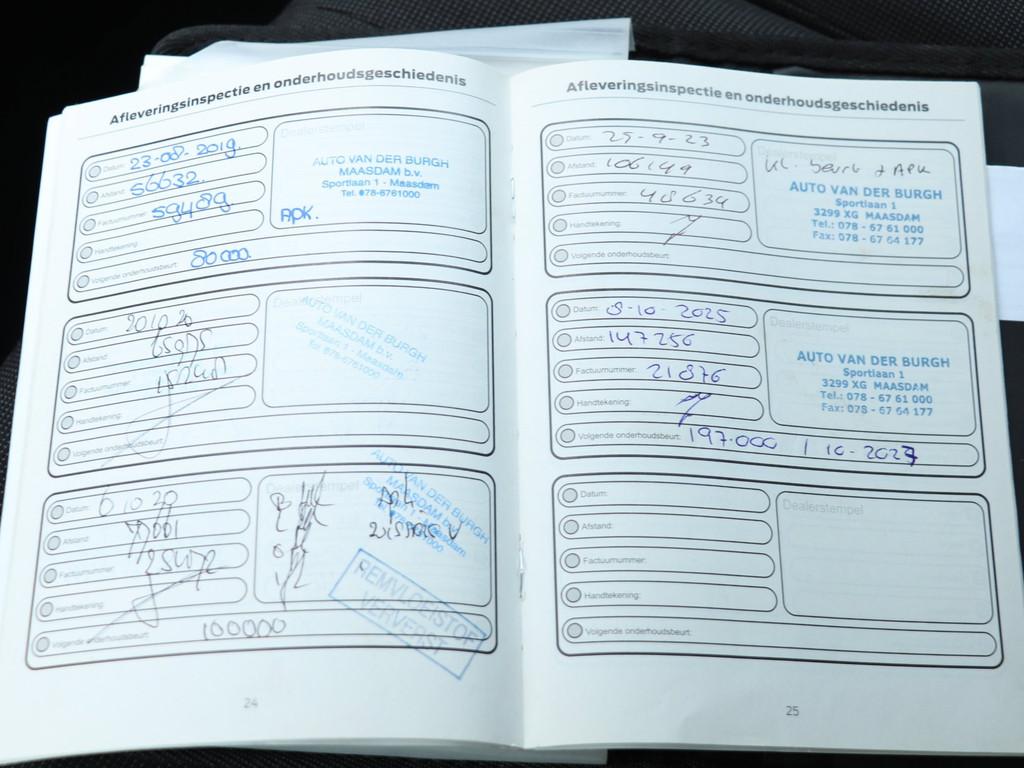 Afleveringsinspectie en onderhoudsgeschiedenis
Datum: 23-08-2019.
Afstand: 56632.
Factuurnummer: 59489
Handtekening:
Volgende onderhoudsbeurt: 80000.
Dealerstempel
AUTO VAN DER BURGH
MAASDAM b.v.
Sportlaan 1 - Maasdam
Tel. 078-6761000
APK.
Datum: 201020
Afstand:
Factuurnummer:
Handtekening:
Volgende onderhoudsbeurt:
Dealerstempel
AUTO VAN DER BURGH
MAASDAM b.v.
Sportlaan 1 - Maasdam
Tel. 078-6761000
Datum:
Afstand:
Factuurnummer:
Handtekening:
Volgende onderhoudsbeurt: 100000
AUTO VAN DER BURGH
MAASDAM b.v.
REMVLOEISTOF
VERVERST
24
Afleveringsinspectie en onderhoudsgeschiedenis
Datum: 25-9-23
Afstand: 106149
Factuurnummer: 48634
Handtekening:
Volgende onderhoudsbeurt:
Dealerstempel
KL. beurt + APK
AUTO VAN DER BURGH
Sportlaan 1
3299 XG MAASDAM
Tel.: 078 - 67 61 000
Fax: 078 - 67 64 177
Datum: 8-10-2025
Afstand: 147256
Factuurnummer: 21876
Handtekening:
Volgende onderhoudsbeurt: 197.000 / 10-2027
Dealerstempel
AUTO VAN DER BURGH
Sportlaan 1
3299 XG MAASDAM
Tel.: 078 - 67 61 000
Fax: 078 - 67 64 177
Datum:
Afstand:
Factuurnummer:
Handtekening:
Volgende onderhoudsbeurt:
Dealerstempel
25